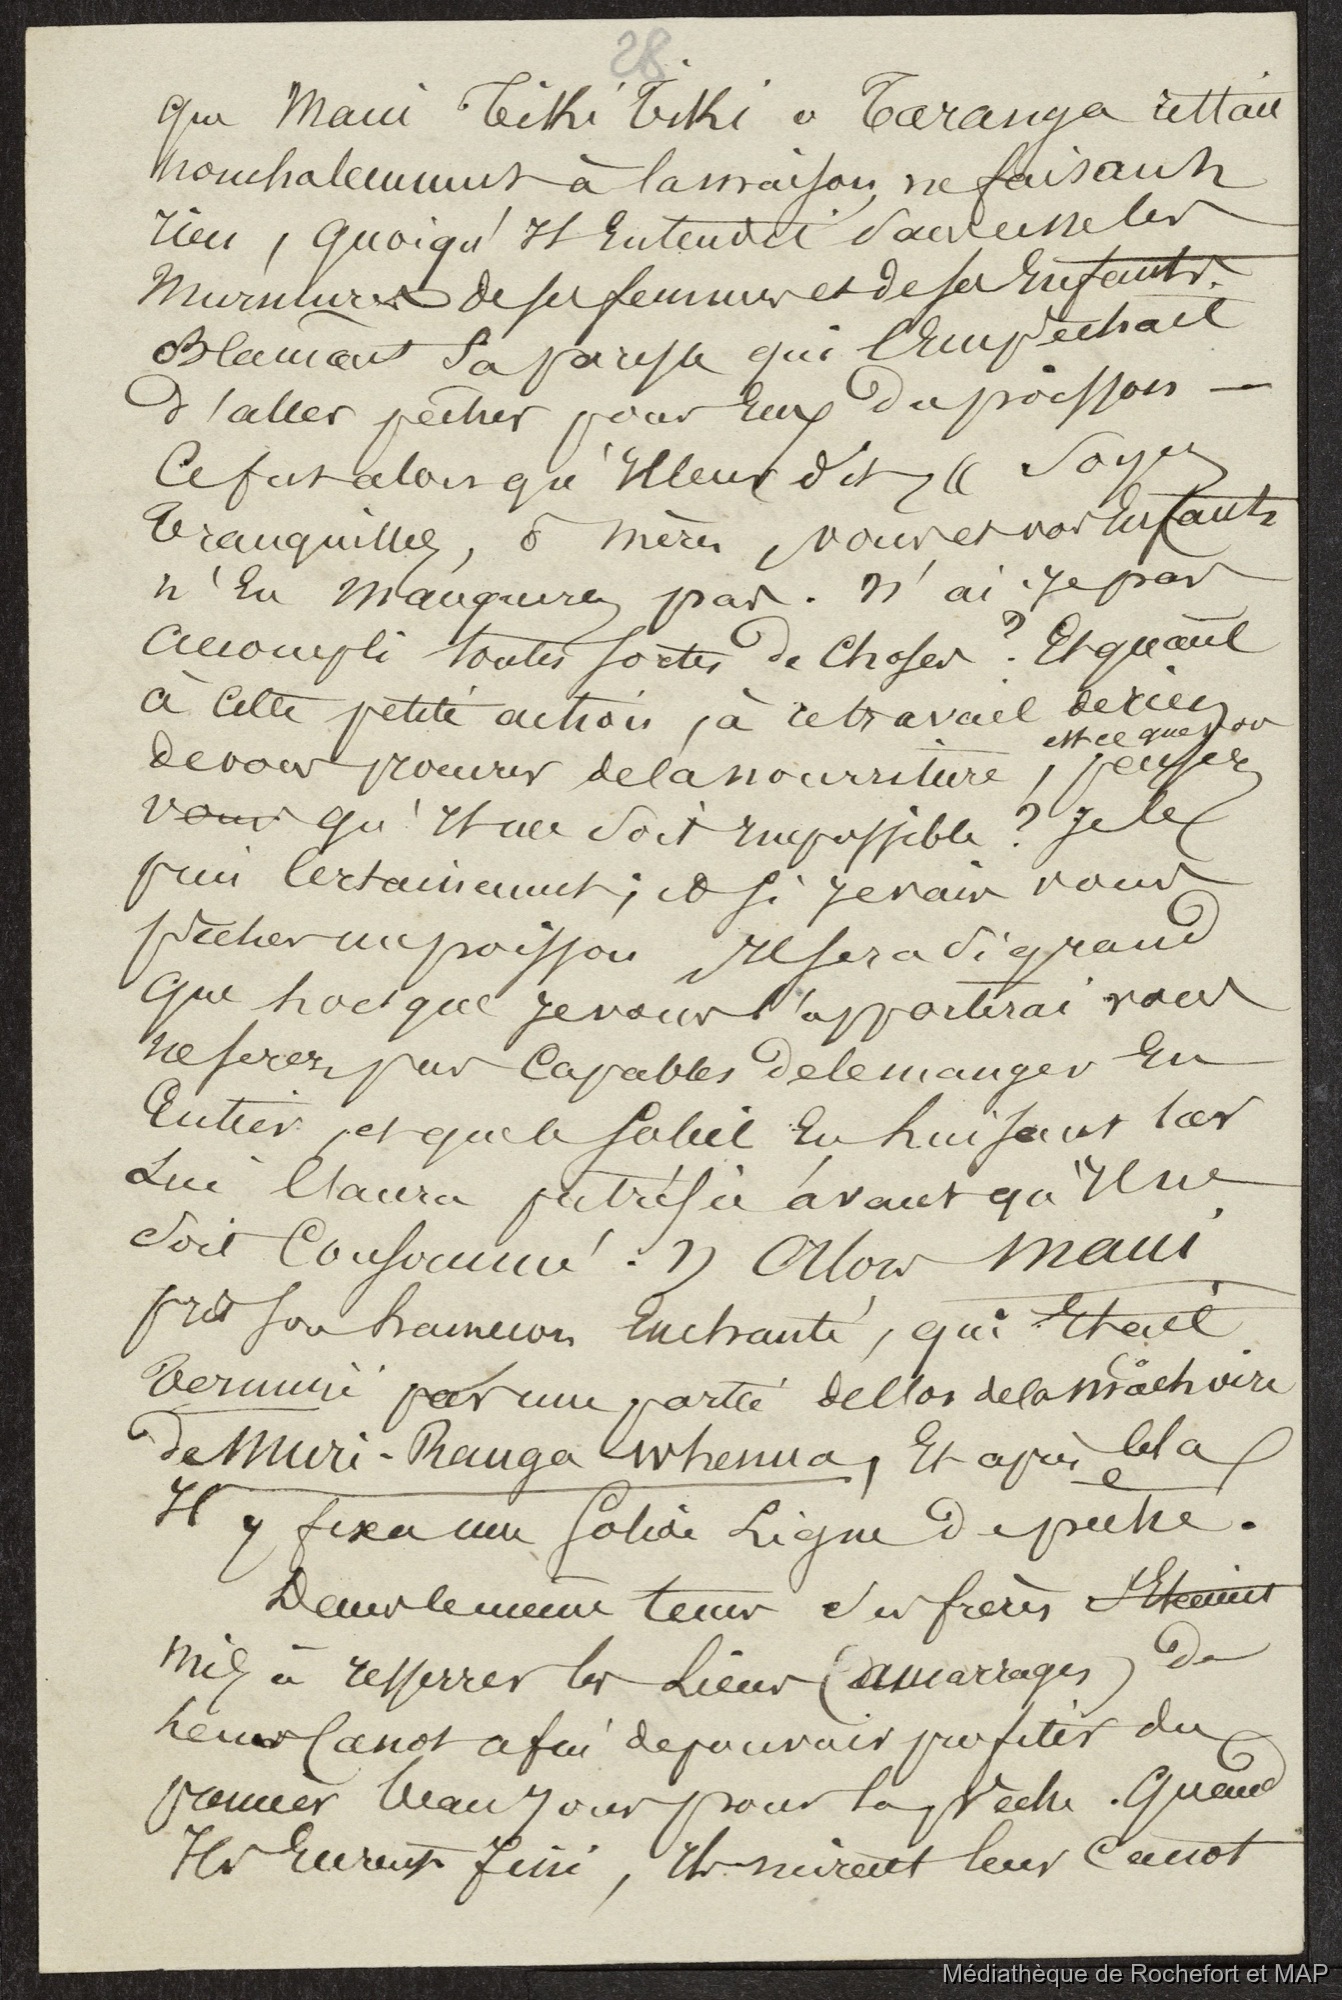 28
que Maui Tiki Tiki o Taranga restait
nonchalemment à la maison, ne faisant
rien, quoiqu'Il Entendit sans cesse les
Murmures de ses femmes et de ses Enfants.
Blamant sa paresse qui l'Empêchait
d'aller pêcher pour Eux du poisson —
Ce fut alors qu'Il leur dit, « Soyez
tranquilles, ô mères, vous et vos Enfants
n'En manquerez pas. N'ai-je pas
accompli toutes sortes de choses? Et quant
à cette petite action, à ce travail de rien
est ce que vous
de vous procurer de la nourriture, pensez
vous qu'Il me soit impossible? Je le
puis certainement; et si je vais vous
pêcher un poisson Il sera si grand
que lorsque je vous l'apporterai vous
ne serez pas capables de le manger En
Entier, et que le soleil En luisant sur
Lui l'aura putréfié avant qu'Il ne
soit Consommé. » Alors Maui
prit son hameçon Enchanté, qui Etait
terminé par une partie de l'os de la mâchoire
de Muri-Ranga-Whenua, Et après cela
Il y fixa une solide Ligne de pêche.
Dans le même temps ses frères s'Etaient
mis à resserrer les Liens (amarrages) de
leur Canot afin de pouvoir profiter du
premier beau jour pour la pêche. Quand
Ils Eurent fini, Ils mirent leur Canot
Médiathèque de Rochefort et MAP